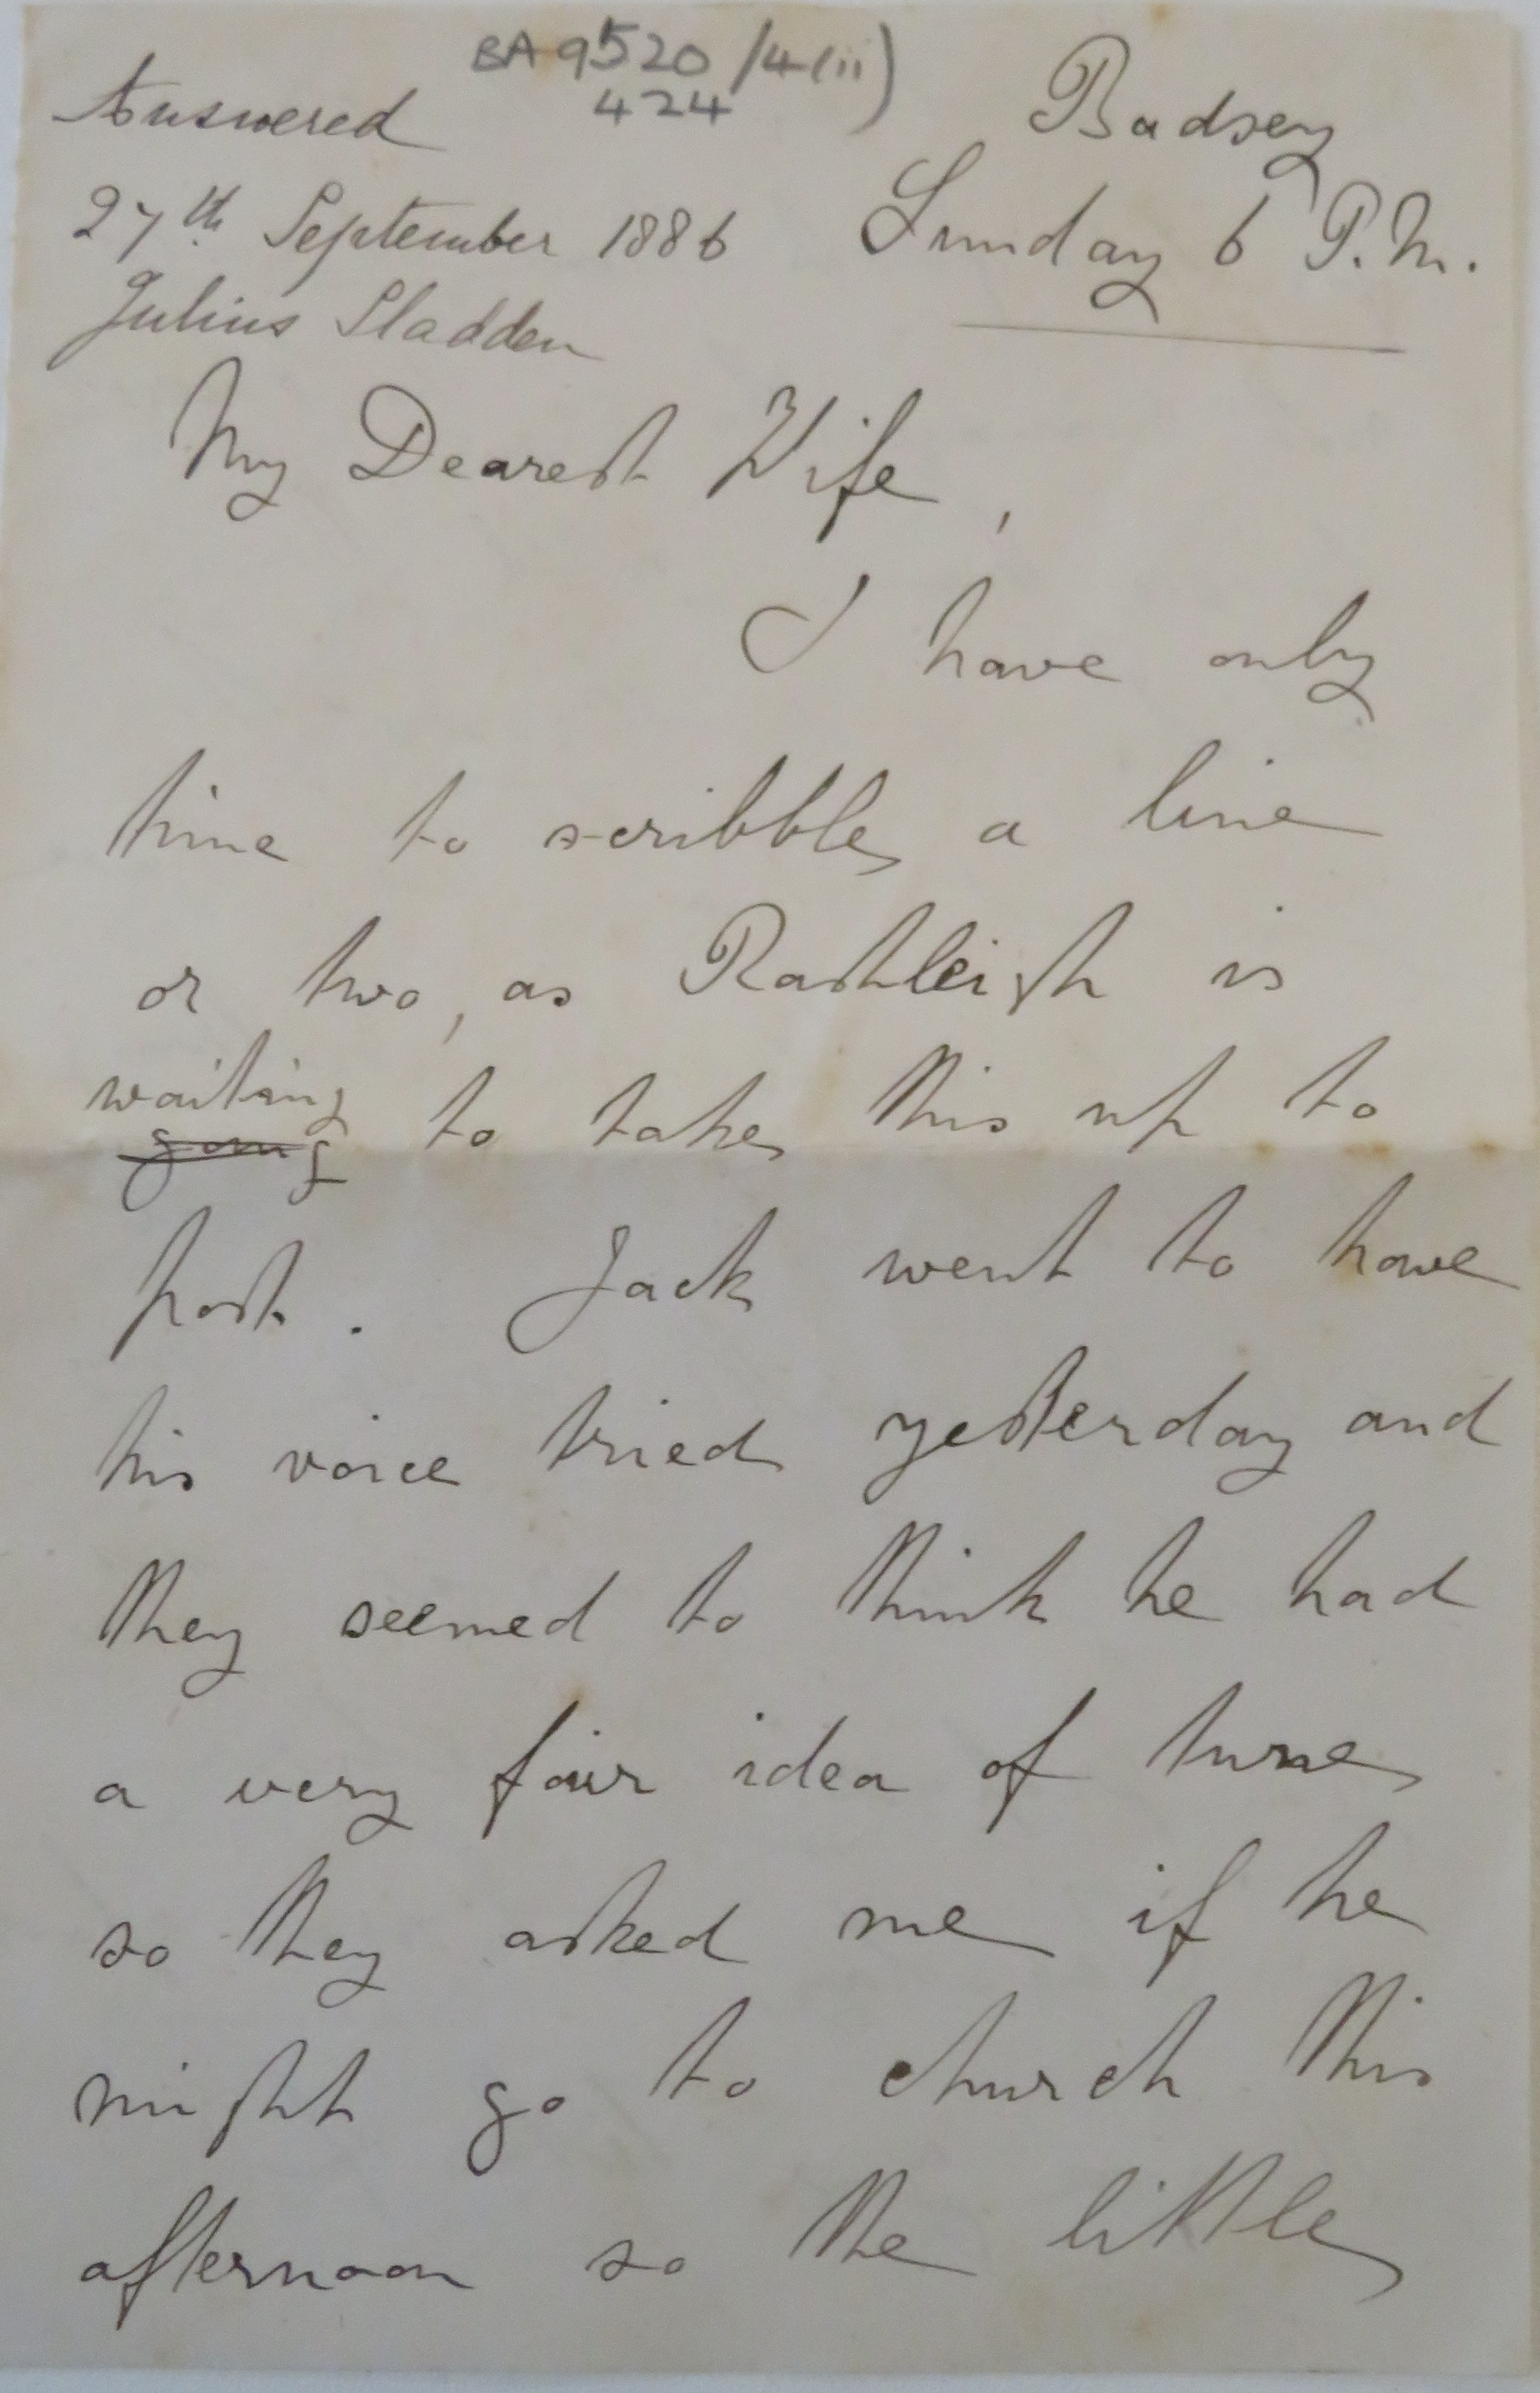 BA 9520 /4(ii)
424
Answered
27th September 1886
Julius Sladden
Badsey
Sunday 6 P.M.
My Dearest Wife,
I have only
time to scribble a line
or two, as Rashleigh is
waiting
going to take this up to
post. Jack went to have
his voice tried yesterday and
they seemed to think he had
a very fair idea of tune
so they asked me if he
might go to church this
afternoon so the little